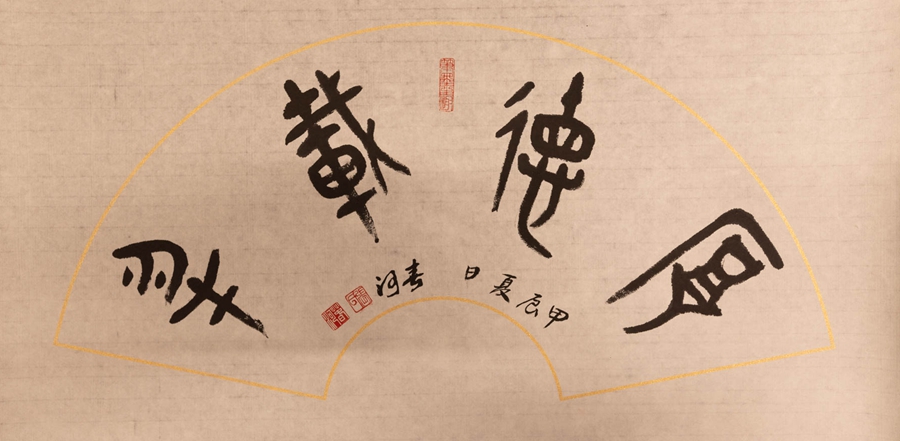 厚德載物
甲辰夏日 春河